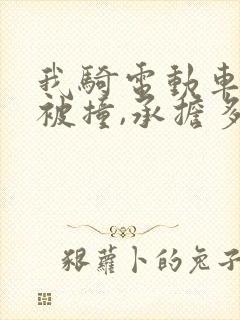 我騎電動車
被撞,承擔多
狠蘿卜的兔子